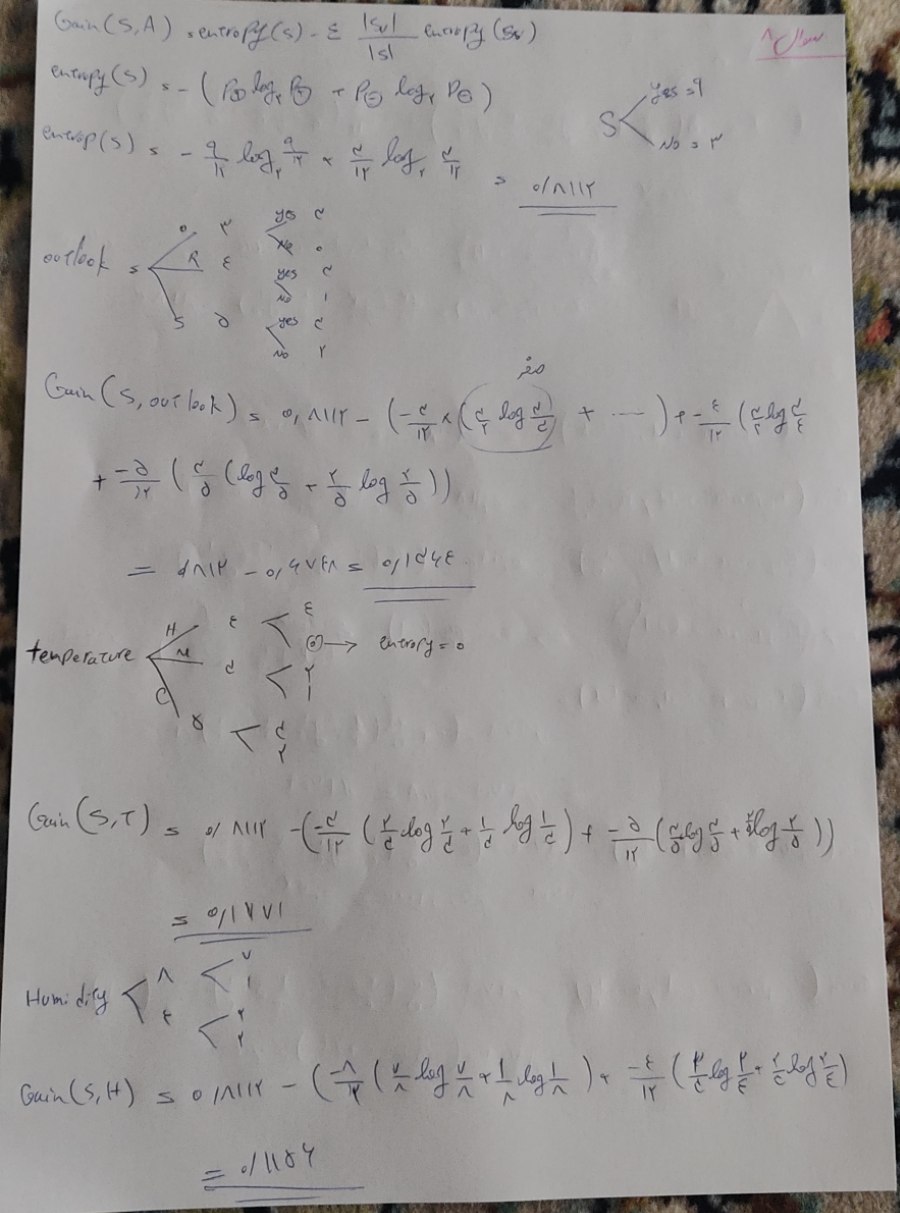 سوال ۸
Gain(S,A) = entropy(s) - Σ |Sv| / |S| entropy(Sv)
entropy(s) = - (P⊕ log₂ P⊕ + P⊖ log₂ P⊖)
S yes = ۹
No = ۳
entrop(s) = - ۹/۱۲ log₂ ۹/۱۲ + ۳/۱۲ log₂ ۳/۱۲ = ۰/۸۱۱۲
outlook =
O ۳ yes ۳
No ۰
R ۴ yes ۳
No ۱
S ۵ yes ۳
No ۲
صفر
Gain(S,outlook) = ۰,۸۱۱۲ - (-۳/۱۲ × (۳/۳ log ۳/۳ + ---- ) + -۴/۱۲ (۳/۴ log ۳/۴
+ -۵/۱۲ (۳/۵ (log ۳/۵ + ۲/۵ log ۲/۵))
= ۰,۸۱۱۲ - ۰,۶۷۴۸ = ۰,۱۳۶۴
temperature
H ۴ ۴
۰ → entropy = ۰
M ۳ ۲
۱
C ۵ ۳
۲
Gain(S,T) = ۰/۸۱۱۲ - (-۳/۱۲ (۲/۳ log ۲/۳ + ۱/۳ log ۱/۳) + -۵/۱۲ (۳/۵ log ۳/۵ + ۲/۵ log ۲/۵))
= ۰/۱۷۷۱
Humidity
۸ ۷
۱
۴ ۲
۲
Gain(S,H) = ۰/۸۱۱۲ - (-۸/۱۲ (۷/۸ log ۷/۸ + ۱/۸ log ۱/۸) + -۴/۱۲ (۲/۴ log ۲/۴ + ۲/۴ log ۲/۴)
= ۰/۱۱۵۶